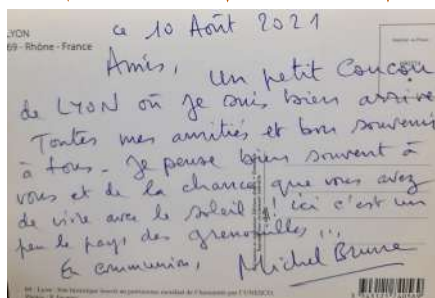 LYON
69 - Rhône - France
Ce 10 Août 2021
Amis, un petit Coucou
de LYON où je suis bien arrivé
Toutes mes amitiés et bon souvenir
à tous - Je pense bien souvent à
vous et de la chance que vous avez
de vivre avec le soleil ! ici c'est un
peu le pays des grenouilles !!!
En communion, Michel Brune
69 - Lyon - Site historique inscrit au patrimoine mondial de l'humanité par l'UNESCO